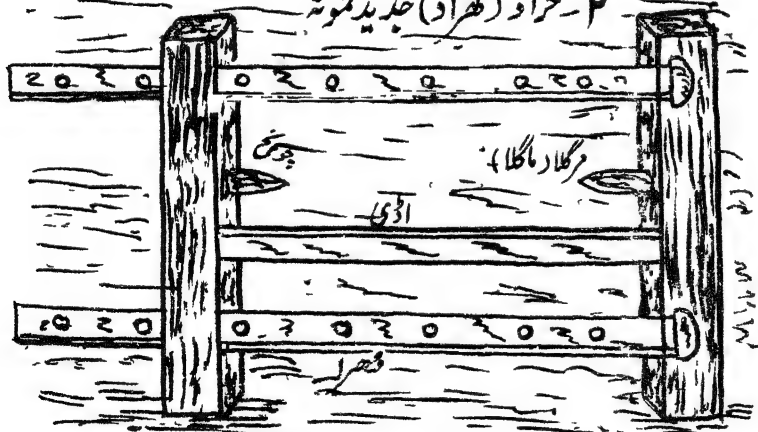 ۲ ۔ خراد (کھراد) جدید نمونہ
چونچ
مرگلا (ماگلا)
اڈی